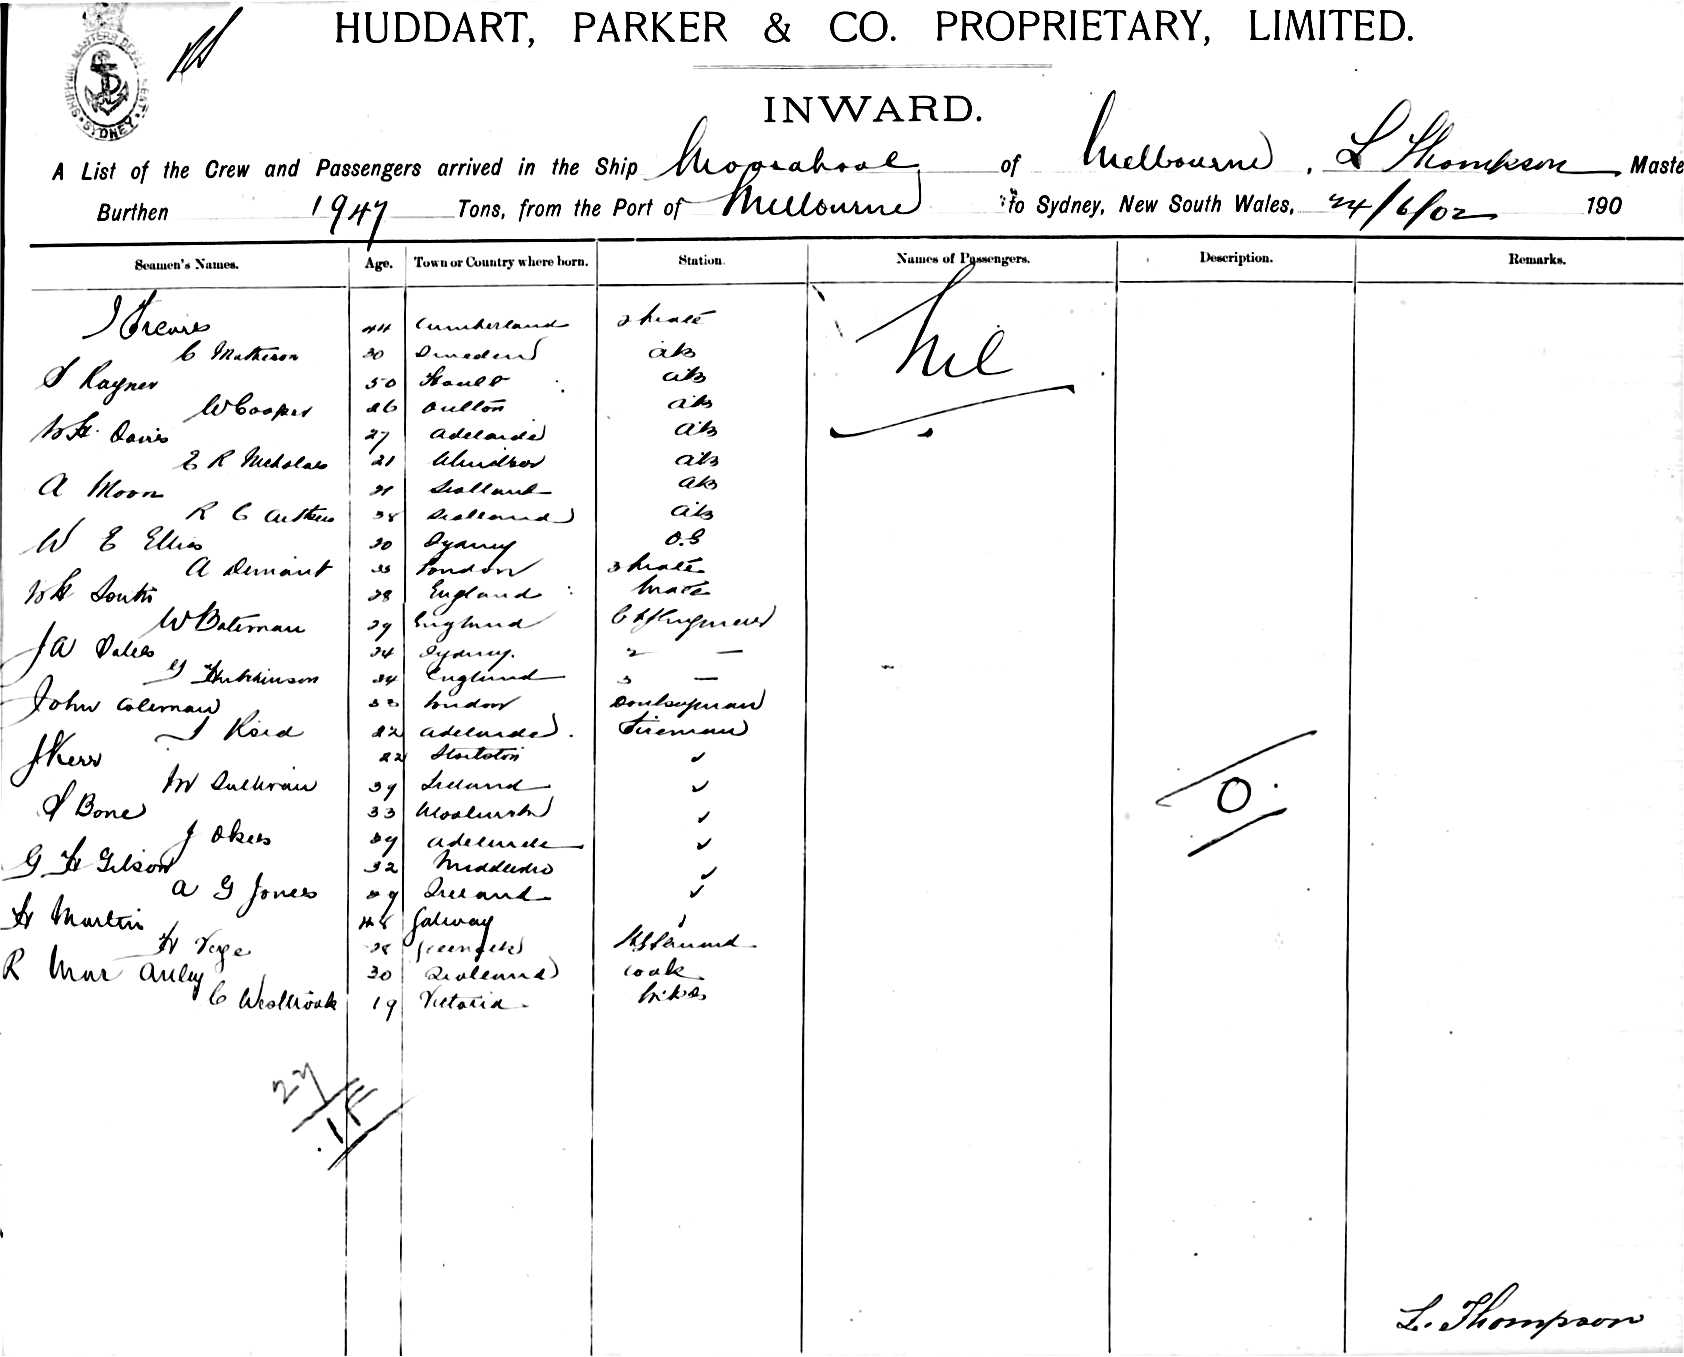 HUDDART, PARKER & CO. PROPRIETARY, LIMITED.
SHIPPING MASTERS DEPARTMENT SYDNEY
INWARD.
A List of the Crew and Passengers arrived in the Ship Moorabool of Melbourne, L Thompson Maste
Burthen 1947 Tons, from the Port of Melbourne To Sydney, New South Wales, 24/6/02 190
Seamen's Names. Age. Town or Country where born. Station. Names of Passengers. Description. Remarks.
44 Cumberland 2 Mate Nil
C Matheson 30 Dunedin AB
Rayner 50 AB
W Cooper 26 Oulton AB
W H Davis 27 Adelaide AB
E R Nicholas 21 Windsor AB
A Moon Scotland AB
R C 38 Scotland AB
W E Ellis 20 Sydney O.S
A London 3 Mate
W H South 28 England Mate
W Bateman 29 England Ch Engineer
J A 24 Sydney. 2 —
G Hutchinson 34 England 3 —
John Coleman London Donkeyman
Reid 22 Adelaide. Fireman
J Kerr 22 ✓
M Sullivan 39 Ireland ✓
S Bone 33 ✓
J Okes Adelaide ✓ O.
G H Gibson 32 Middlesbro ✓
A G Jones Ireland ✓
H Martin 48 Galway
H Verge 28 Steward
R Mac Auley 30 Scotland Cook
C Westbrook 19 Victoria
27
1F
L. Thompson